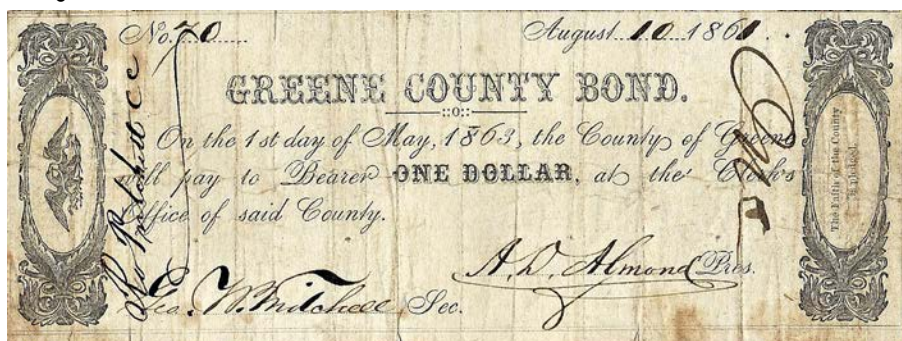 No. 70 August 10 1861.
GREENE COUNTY BOND.
On the 1st day of May, 1863, the County of Greene
will pay to Bearer ONE DOLLAR, at the Clerk's
Office of said County.
A. D. Almond Pres.
Geo. W. Mitchell Sec.
The Faith of the County
is Pledged.